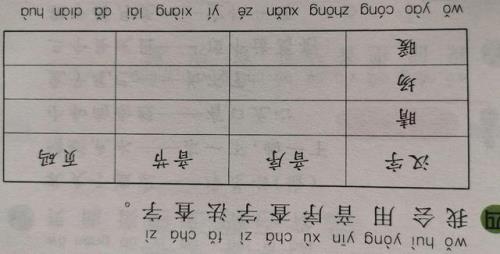 wǒ huì yòng yīn xù chá zì fǎ chá zì
四 我会用音序查字法查字。
汉字 音序 音节 页码
晴
扬
暖
wǒ yào cóng zhōng xuǎn zé yí xiàng lái dǎ diàn huà